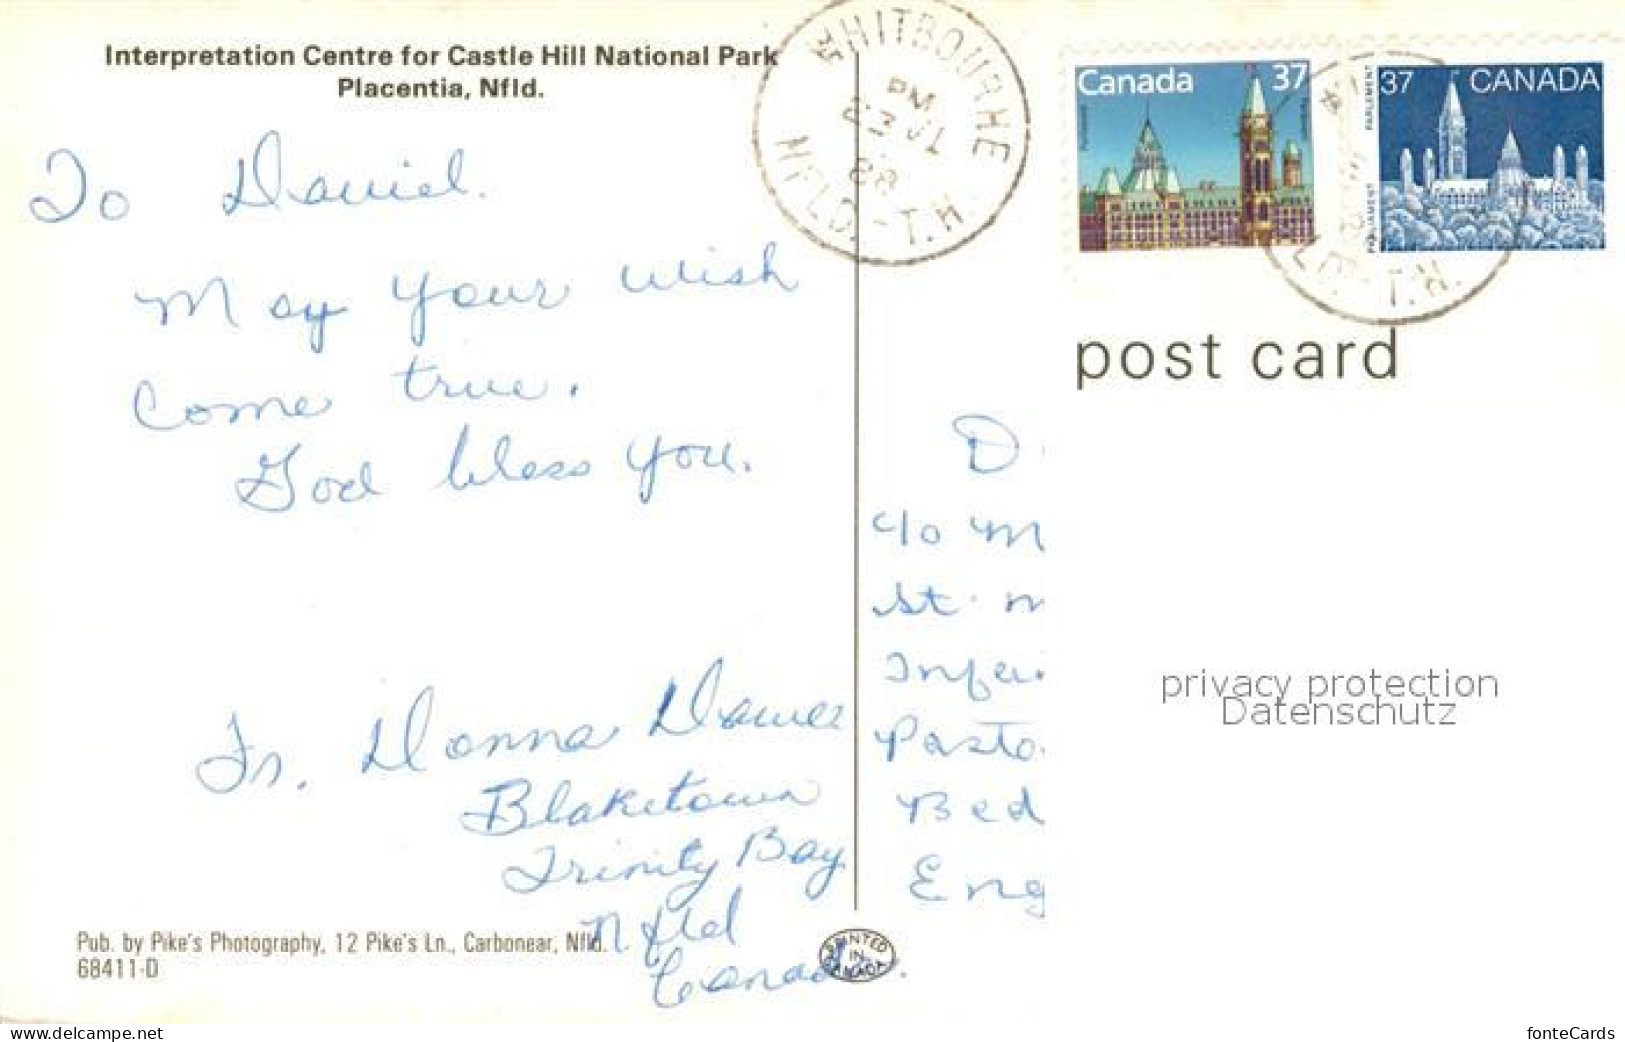 Interpretation Centre for Castle Hill National Park
Placentia, Nfld.
WHITBOURNE
PM
23 JL
88
NFLD.-T.N.
Canada 37
37 CANADA
PARLIAMENT PARLEMENT
LD.-T.N.
To Daniel.
May your wish
come true.
God bless you.
post card
D
c/o M
St. m
Infan
Pasto
Bed
Eng
privacy protection
Datenschutz
Fr. Donna Dawe
Blaketown
Trinity Bay
Nfld
Canada.
Pub. by Pike's Photography, 12 Pike's Ln., Carbonear, Nfld.
68411-D
PRINTED
IN
CANADA
www.delcampe.net
fonteCards